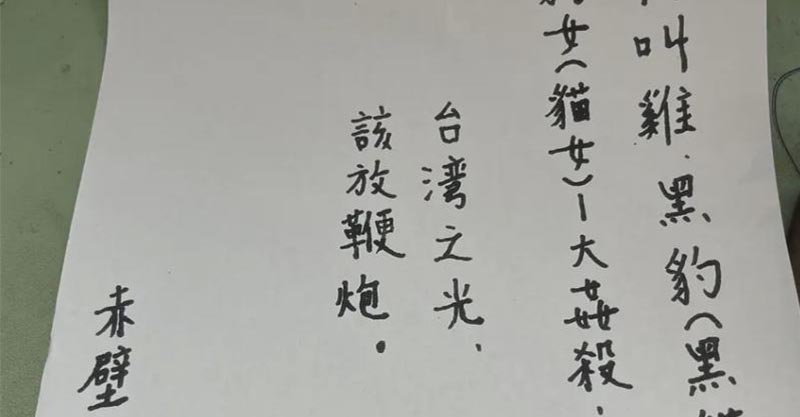 叫雞.黑豹(黑
女(貓女)—大姦殺.
台湾之光.
該放鞭炮.
赤壁